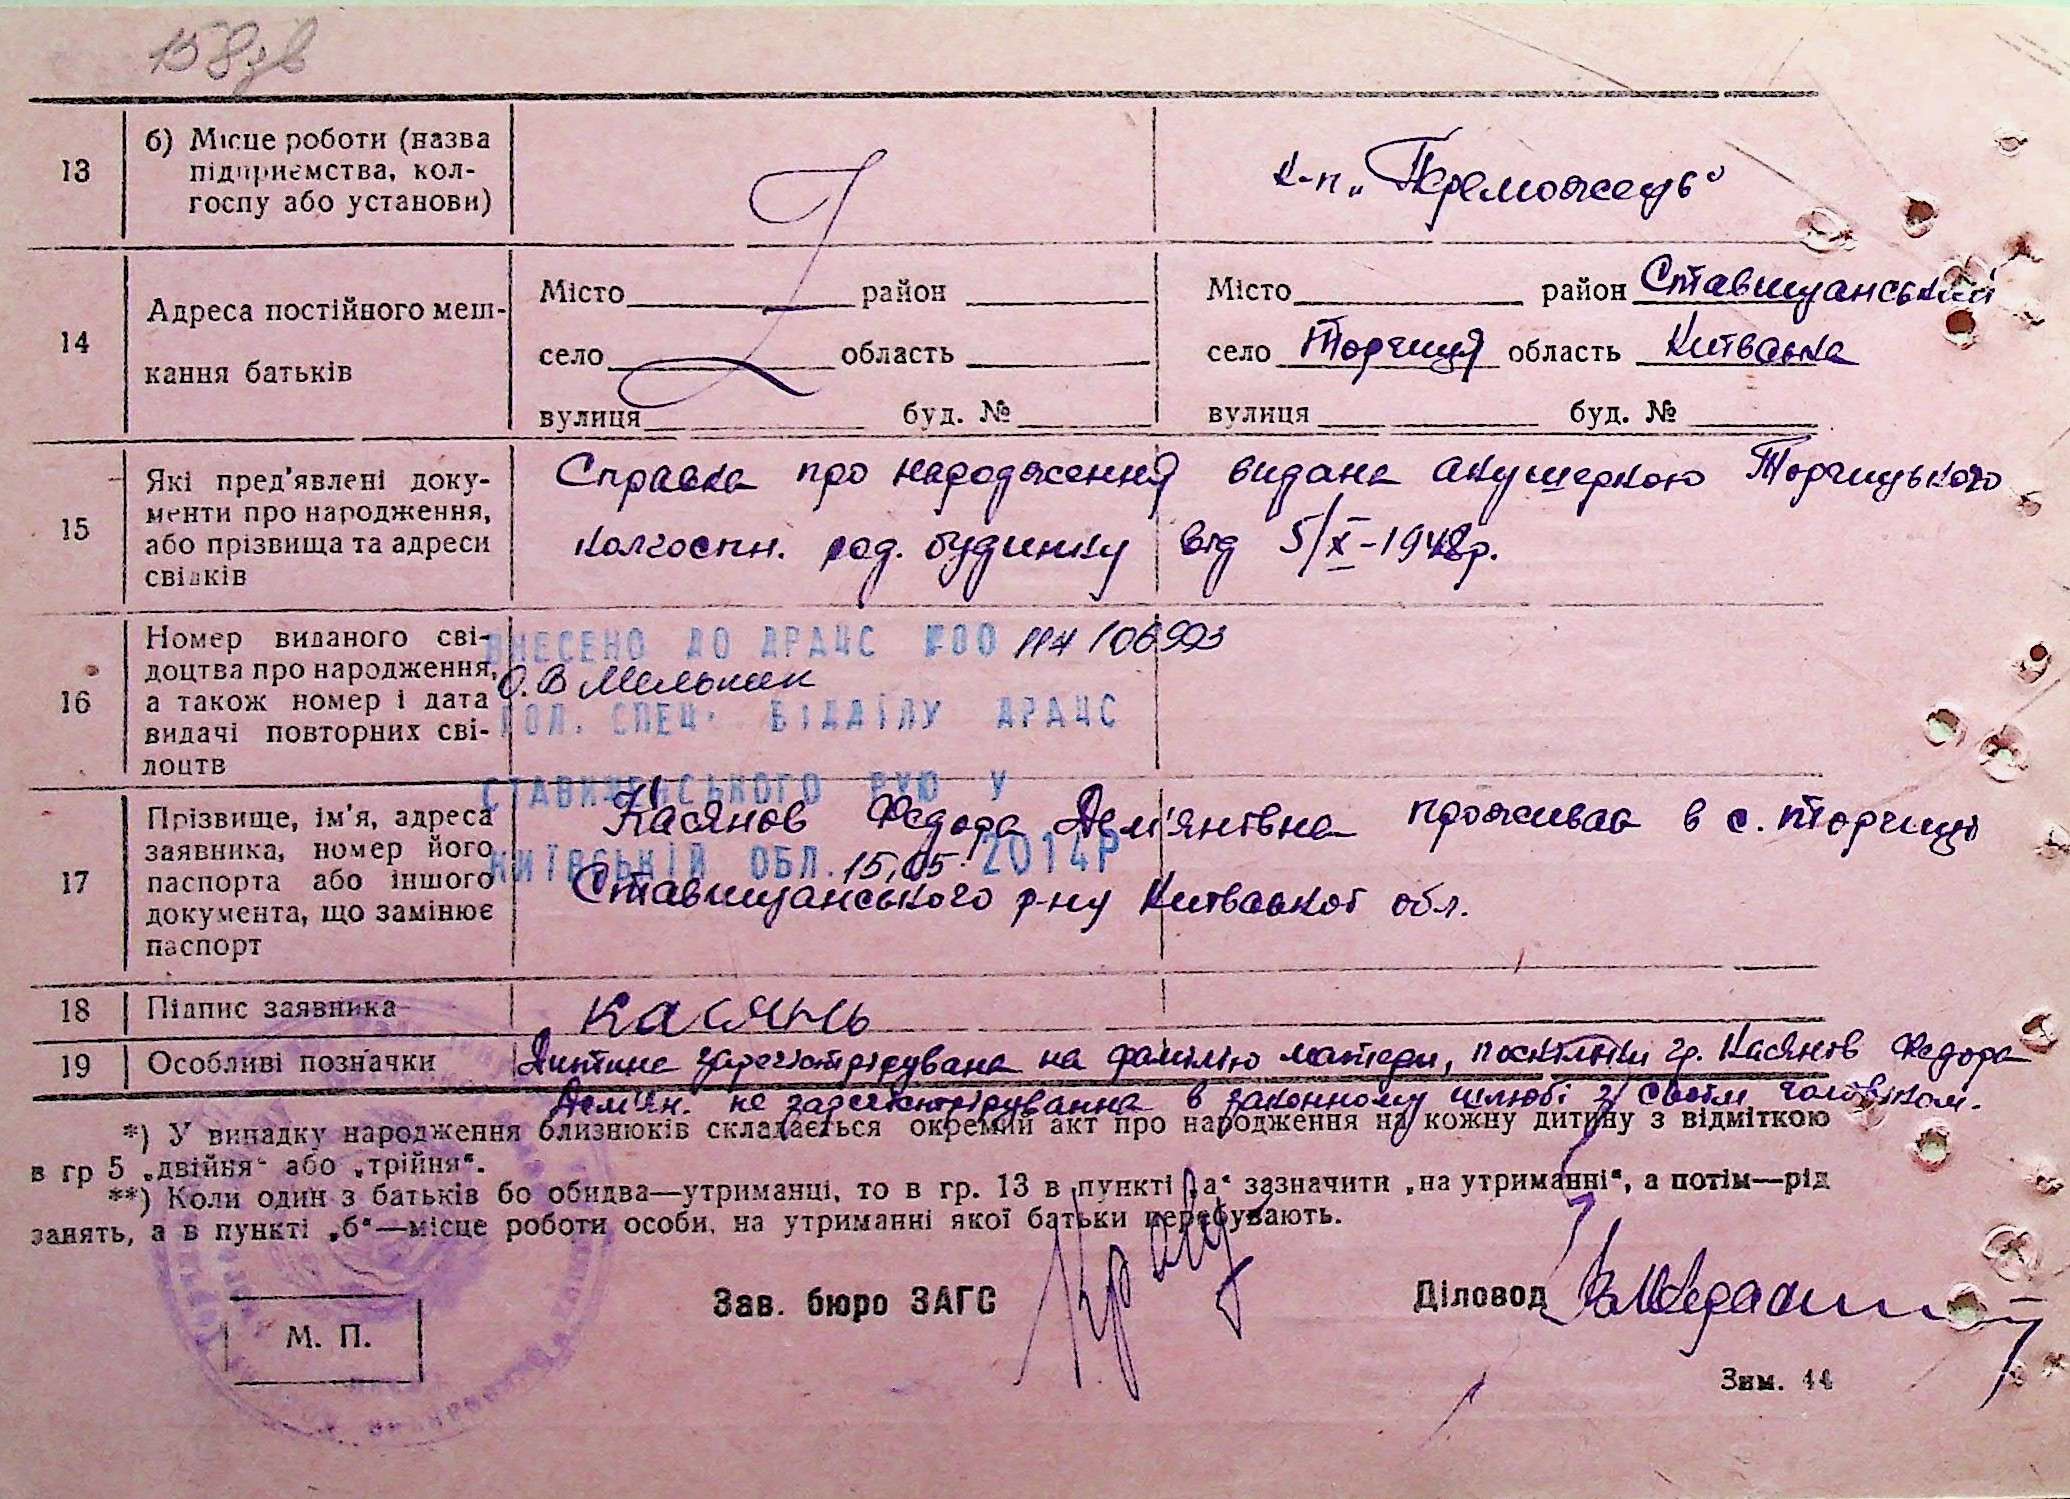 158зв
13
б) Місце роботи (назва
підприємства, кол-
госпу або установи)
к-п „Переможець"
14
Адреса постійного меш-
кання батьків
Місто район
село область
вулиця буд. №
Місто район Ставищанський
село Торчиця область Київська
вулиця буд. №
15
Які пред'явлені доку-
менти про народження,
або прізвища та адреси
свідків
Справка про народження видана акушеркою Торчицького
колгоспн. род. будинку від 5/X-1948р.
16
Номер виданого сві-
доцтва про народження,
а також номер і дата
видачі повторних сві-
доцтв
ВНЕСЕНО ДО ДРАЦС 114/06993
О.В Мельник
ГОЛ. СПЕЦ. ВІДДІЛУ ДРАЦС
СТАВИЩЕНСЬКОГО РУЮ У
КИЇВСЬКІЙ ОБЛ. 15,05 2014Р
17
Прізвище, ім'я, адреса
заявника, номер його
паспорта або іншого
документа, що замінює
паспорт
Касянов Федора Дем'янівна проживає в с. Торчиці
Ставищанського р-ну Київської обл.
18
Підпис заявника
касянь
19
Особливі позначки
Дитина зарегістрірувана на фамілію матери, поскільки гр. Касянов Федора
Дем'ян. не зарегістрірування в законному шлюбі з своїм чоловіком.
*) У випадку народження близнюків складається окремий акт про народження на кожну дитину з відміткою
в гр 5 „двійня" або „трійня".
**) Коли один з батьків бо обидва—утриманці, то в гр. 13 в пункті „а" зазначити „на утриманні", а потім—рід
занять, а в пункті „б"—місце роботи особи, на утриманні якої батьки перебувають.
Зав. бюро ЗАГС
Діловод
М. П.
Зим. 44